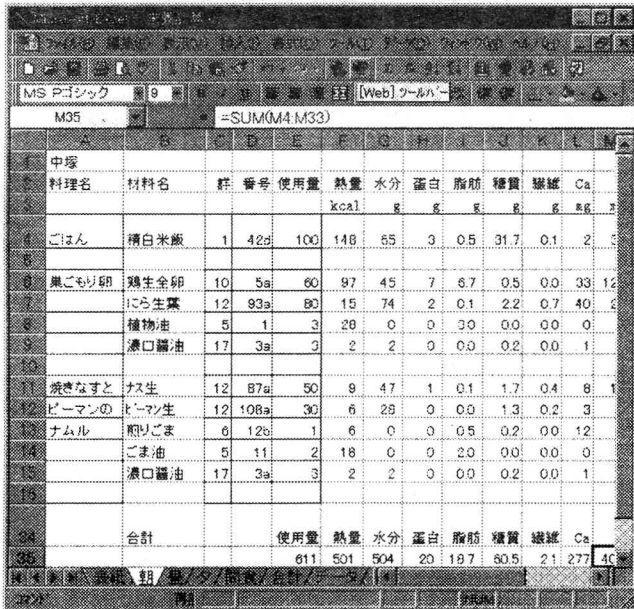 MS Pゴシック 9 [Web] ツールバー
M35 =SUM(M4:M33)
中塚
料理名 材料名 群 番号 使用量 熱量 水分 蛋白 脂肪 糖質 繊維 Ca
kcal g g g g g mg
ごはん 精白米飯 1 42d 100 148 65 3 0.5 31.7 0.1 2
巣ごもり卵 鶏生全卵 10 5a 60 97 45 7 6.7 0.5 0.0 33 12
にら生葉 12 93a 80 15 74 2 0.1 2.2 0.7 40
植物油 5 1 3 28 0 0 3.0 0.0 0.0 0
濃口醤油 17 3a 3 2 2 0 0.0 0.2 0.0 1
焼きなすと ナス生 12 87a 50 9 47 1 0.1 1.7 0.4 8 1
ピーマンの ピーマン生 12 108a 30 6 28 0 0.0 1.3 0.2 3
ナムル 煎りごま 6 12b 1 6 0 0 0.5 0.2 0.0 12
ごま油 5 11 2 18 0 0 2.0 0.0 0.0 0
濃口醤油 17 3a 3 2 2 0 0.0 0.2 0.0 1
合計 使用量 熱量 水分 蛋白 脂肪 糖質 繊維 Ca
35 611 501 504 20 18.7 60.5 2.1 277 40
表紙 朝 昼 夕 間食 合計 データ